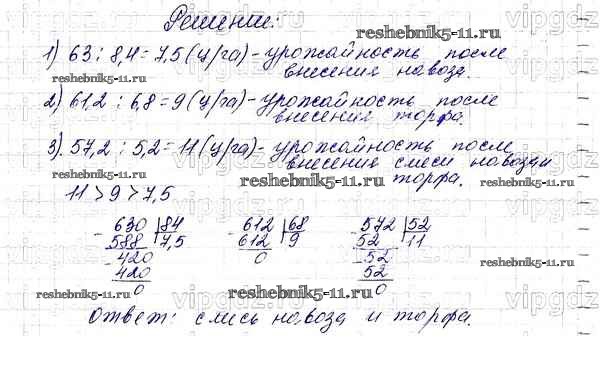 Решение:
1) 63 : 8,4 = 7,5 (ц/га) - урожайность после
внесения навоза.
2) 61,2 : 6,8 = 9 (ц/га) - урожайность после
внесения торфа
3) 57,2 : 5,2 = 11 (ц/га) - урожайность после
внесения смеси навоза и
торфа.
11 > 9 > 7,5
630 84 612 68 572 52
588 7,5 612 9 52 11
420 0 52
420 52
0 0
Ответ: смесь навоза и торфа.
reshebnik5-11.ru
reshebnik5-11.ru
reshebnik5-11.ru
reshebnik5-11.ru
reshebnik5-11.ru
reshebnik5-11.ru
reshebnik5-11.ru
reshebnik5-11.ru
vipgdz
vipgdz
vipgdz